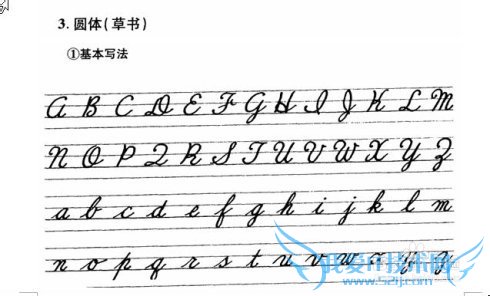 3. 圆体(草书)
①基本写法
A B C D E F G H I J K L M
N O P Q R S T U V W X Y Z
a b c d e f g h i j k l m
n o p q r s t u v w x y z
我爱IT技术网